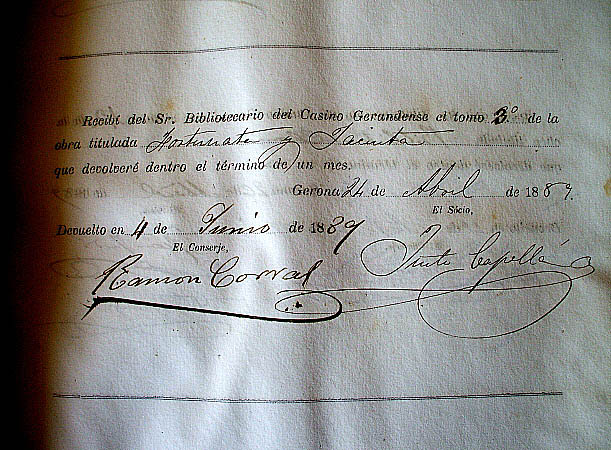 Recibí del Sr. Bibliotecario del Casino Gerundense el tomo 3º de la
obra titulada Fortunata y Jacinta
que devolveré dentro el término de un mes.
Gerona 24 de Abril de 1889.
El Sócio,
Devuelto en 4 de Junio de 1889
El Conserje,
Justo Capella
Ramon Corral